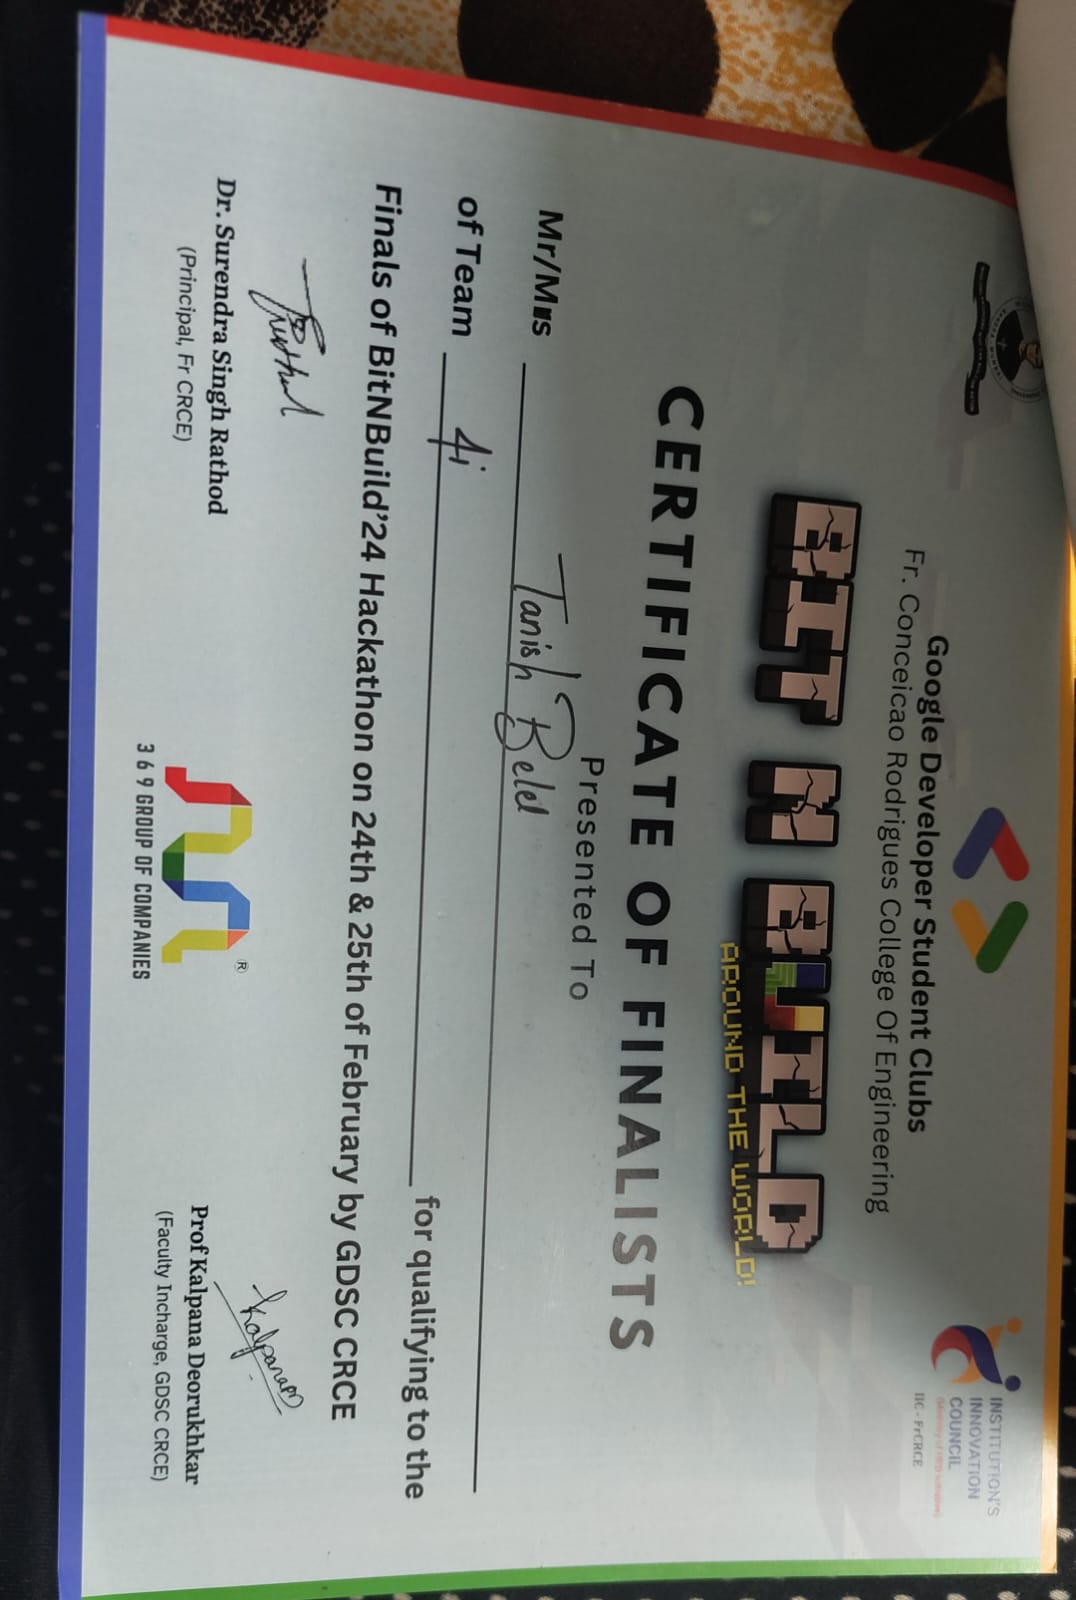 Google Developer Student Clubs
Fr. Conceicao Rodrigues College Of Engineering
INSTITUTION'S
INNOVATION
COUNCIL
(Ministry of HRD Initiative)
IIC - FrCRCE
BIT N BUILD
AROUND THE WORLD!
CERTIFICATE OF FINALISTS
Presented To
Mr/Mrs Tanish Beld
of Team 4i for qualifying to the
Finals of BitNBuild'24 Hackathon on 24th & 25th of February by GDSC CRCE
Kalpana
Dr. Surendra Singh Rathod
(Principal, Fr CRCE)
369 GROUP OF COMPANIES
Prof Kalpana Deorukhkar
(Faculty Incharge, GDSC CRCE)